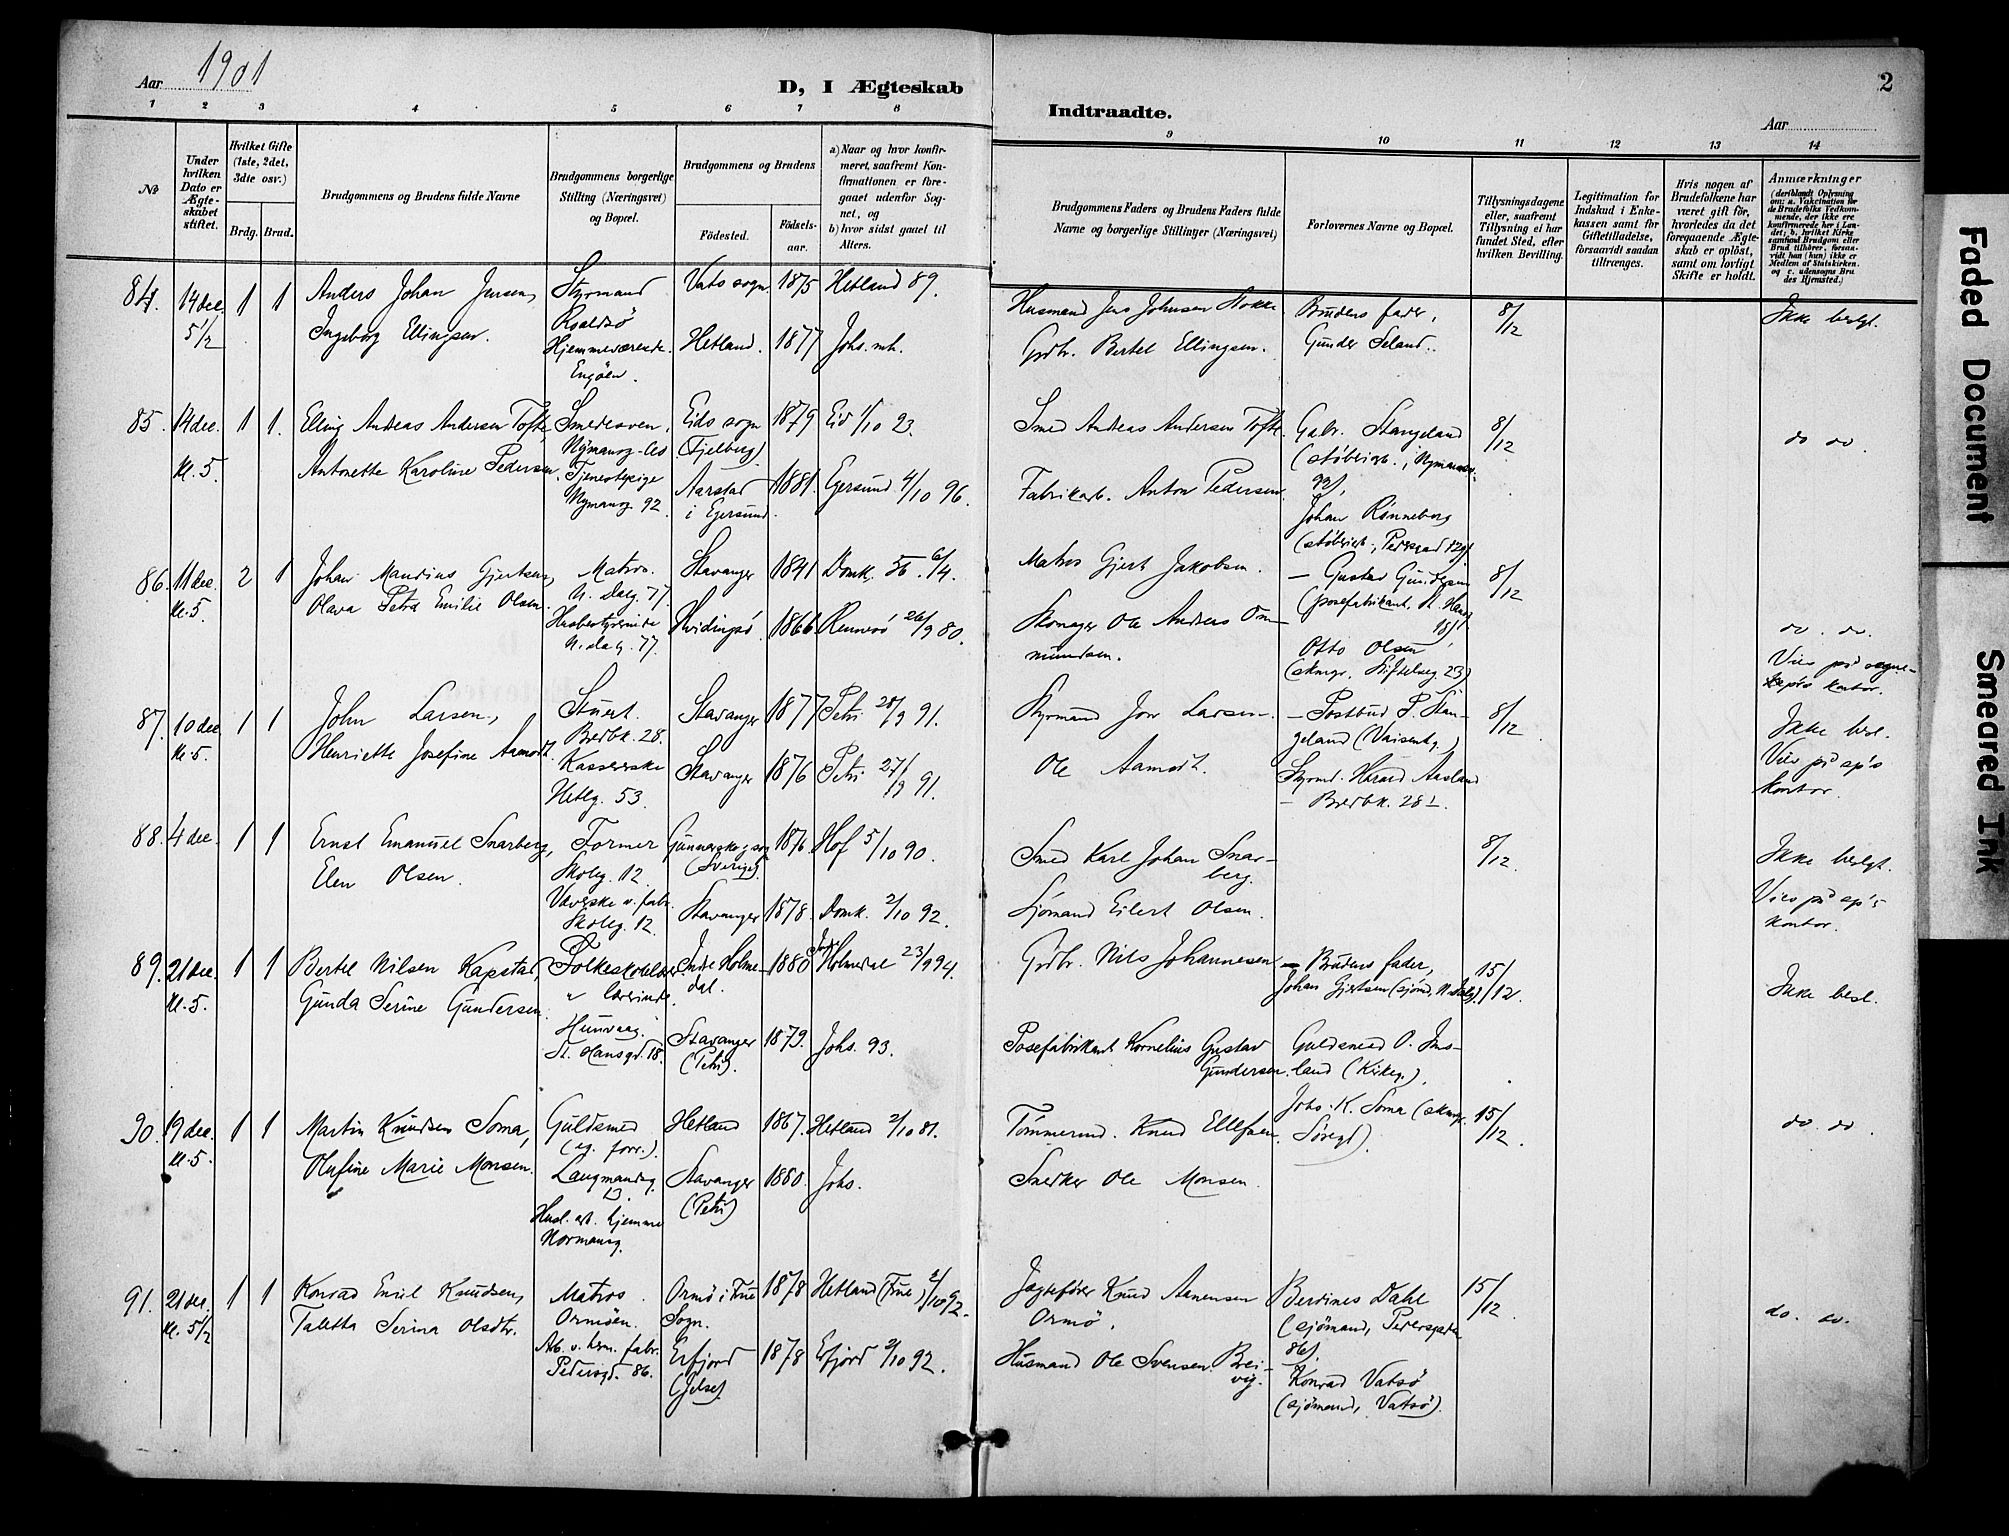 Aar 1901
D, I Ægteskab
Indtraadte.
2
Aar
1 2 3 4 5 6 7 8 9 10 11 12 13 14
No
Under hvilken Dato er Ægteskabet stiftet.
Hvilket Gifte (1ste, 2det, 3die osv.)
Brdg. Brud.
Brudgommens og Brudens fulde Navne
Brudgommens borgerlige Stilling (Næringsvei) og Bopæl.
Brudgommens og Brudens
Fødested.
Fødselsaar.
a) Naar og hvor konfirmeret, saafremt Konfirmationen er foregaaet udenfor Sognet, og
b) hvor sidst gaaet til Alters.
Brudgommens Faders og Brudens Faders fulde Navne og borgerlige Stillinger (Næringsvei)
Forlovernes Navne og Bopæl.
Tillysningsdagene eller, saafremt Tillysning ei har fundet Sted, efter hvilken Bevilling.
Legitimation for Indskud i Enkekassen samt for Giftetilladelse, forsaavidt saadan tiltrænges.
Hvis nogen af Brudefolkene har været gift før, hvorledes da det foregaaende Ægteskab er opløst, samt om lovligt Skifte er holdt.
Anmærkninger
84. 14 dec. 5 1/2 1 1
Anders Johan Jensen,
Ingeborg Ellingsen.
Styrmand
Roaldsö
Hjemmeværende
Engöen.
Vats sogn. 1875 Hetland 89.
Hetland. 1877 Johs. mh.
Husmand Jens Johnsen Stokke
Grdbr. Bertel Ellingsen.
Brudens fader,
Gunder Seland.
8/12
Ikke beslgt.
85. 14 dec. kl. 5. 1 1.
Elling Andreas Andersen Tofte,
Antonette Karoline Pedersen.
Smedesven,
Tjenestepige
Nymansg. 92.
Eids sogn (Fjelberg) 1879 Eid 1/10 93.
Aarstad i Egersund. 1881. Egersund 4/10 96.
Smed Andreas Andersen Tofte.
Fabrikarb. Anton Pedersen.
Gabr. Stangeland
92),
Johan Rønneberg
8/12
do do.
86. 11 dec. kl. 5. 2 1
Johan Mauritius Gjertsen,
Olava Petra Emilie Olsen.
Matros.
N. dalg. 77.
Husbestyrerinde
N. dalg. 77.
Stavanger 1841 Domk. 56. 6/4.
Hvidingsö. 1866 Rennesö 26/9 80.
Matros Gjert Jakobsen.
Skomager Ole Andreas Ommundsen.
— Gustav Gundersen
(posefabrikant, St. Hansg. 18),
Otto Olsen
(skmgr. Stiftelsesg. 23)
8/12
do. do.
Viet paa sognepr's kontor.
87. 10 dec. kl. 5. 1 1
John Larsen,
Henriette Josefine Aamodt.
Stuert.
Bredbk. 28.
Kassererske
Hetlg. 53.
Stavanger 1877 Petri 28/9 91.
Stavanger 1876 Petri 27/9 91.
Styrmand Jon Larsen.
Ole Aamodt.
— Postbud P. Stangeland (Vaisenhg.)
Styrmd. Harald Aasland
— Bredbk. 28 I.
8/12
Ikke besl.
Viet på sp's kontor.
88. 4 dec. 1 1
Ernst Emanuel Snarberg,
Elen Olsen.
Former
Skoleg. 12.
Væverske v. fabr.
Skoleg. 12.
Gunnarskogs sogn (Sverige). 1876. Hof 5/10 90.
Stavanger 1878. Domk. 2/10 92.
Smed Karl Johan Snarberg.
Sjömand Eilert Olsen.
8/12.
Ikke beslgt.
Viet på sp's kontor.
89. 21 dec. kl. 5. 1 1
Bertel Nilsen Kapstad,
Gunda Serine Gundersen.
Folkeskolelærer,
" lærerinde.
Hunvaag.
St. Hansgd. 18.
Indre Holmedal. 1880 Indre Holmedal 23/9 94.
Stavanger (Petri). 1879. Johs. 93.
Grdbr. Nils Johannesen
Posefabrikant Kornelius Gustav Gundersen.
— Brudens fader,
Johan Gjertsen (sjömd, N. dalg.)
Guldsmed O. Imsland (Kirkeg.).
15/12.
Ikke besl.
90. 19 dec. kl. 5. 1 1
Martin Knudsen Soma,
Olufine Marie Monsen.
Guldsmed
(eg. forr.).
Laugmandsg. 13.
Husl. arb. hjemme
Normansg.
Hetland 1867. Hetland 2/10 81.
Stavanger (Petri) 1880. Johs.
Tömmermd. Knud Ellefsen.
Snedker Ole Monsen.
Johs. K. Soma (skmgr. Söregd).
15/12.
do. do.
91. 21 dec. kl. 5 1/2 1 1
Konrad Emil Knudsen,
Taletta Serina Olsdtr.
Matros.
Ormöen.
Arb. v. herm. fabr.
Pedersgd. 86.
Ormö i Frue Sogn. 1878 Hetland (Frue) 2/10 92.
Erfjord (Jelse) 1878 Erfjord 2/10 92.
Jægtefører Knud Aanensen
Ormö.
Husmand Ole Svensen Breivig.
Berdines Dahl
(sjömand, Pedersgaden 86).
Konrad Vatsö
(sjömand, Vatsö).
15/12.
do. do.
Faded Document
Smeared Ink